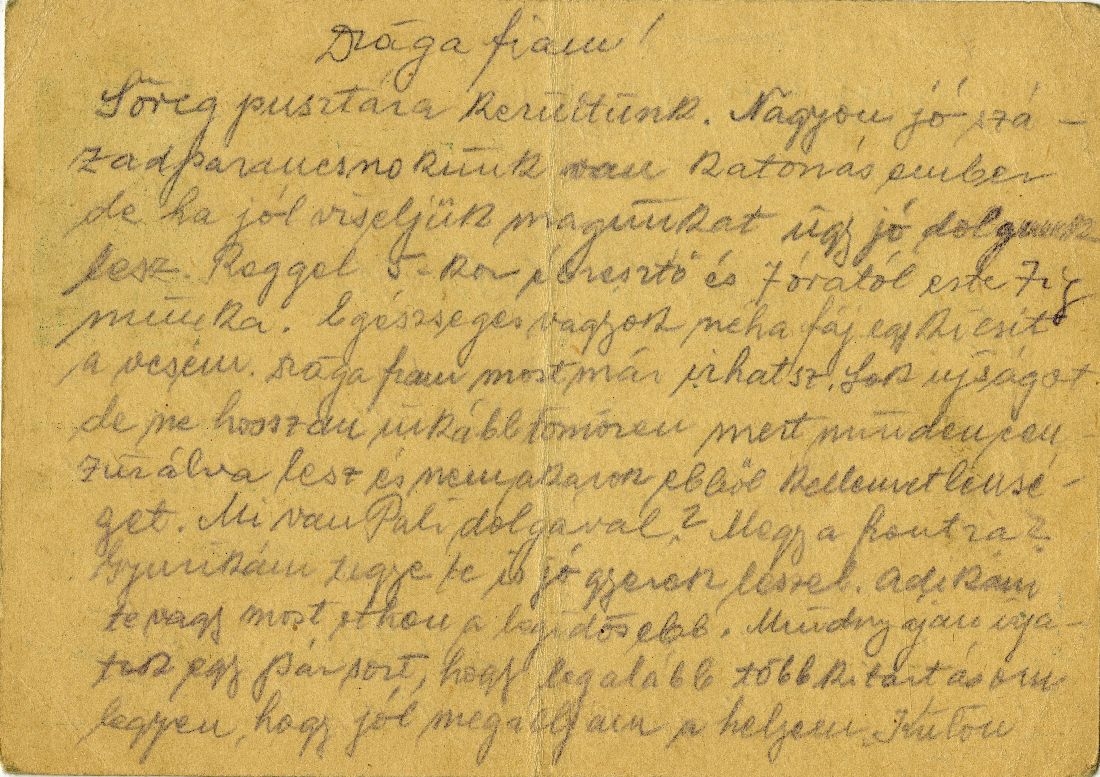 Drága fiam!
Söreg pusztára kerültünk. Nagyon jó szá-
zadparancsnokunk van katonás ember
de ha jól viseljük magunkat úgy jó dolgunk
lesz. Reggel 5-kor ébresztő és 7 órától este 7 ig
munka. Egészséges vagyok néha fáj egy kicsit
a vesém. Drága fiam most már irhatsz. Sok ujságot
de ne hosszan inkább tömören mert minden cen-
zurálva lesz és nem akarok ebből kellemetlensé-
get. Mi van Pali dolgával? Megy a frontra?
Gyurikám ugye te is jó gyerek leszel. Adikám
te vagy most othon a legidősebb. Mindnyájan irja-
tok egy pár sort, hogy legalább több kitartásom
legyen, hogy jól megálljam a helyem. Külön